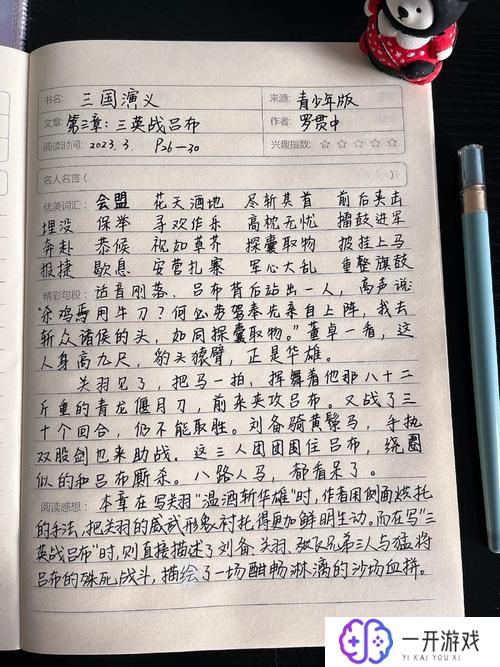 书名: 三国演义 来源: 青少年版
文章: 第三章:三英战吕布 作者: 罗贯中
阅读时间: 2023.3. P26-30 兴趣指数: ☆ ☆ ☆ ☆ ☆
名人名言(
优美词汇: 会盟 花天酒地 尽斩其首 前后夹击
埋没 保举 寻欢作乐 高枕无忧 擂鼓进军
奔赴 恭候 视如草芥 探囊取物 披挂上马
报捷 歇息 安营扎寨 军心大乱 重整旗鼓
精彩句段: 话音刚落、吕布背后站出一人,高声说:
"杀鸡焉用牛刀?何必劳驾奉先亲自上阵,我去
斩众诸侯的头,如同探囊取物。"董卓一看,这
人身高九尺,豹头猿臂,正是华雄。
关羽见了,把马一拍,挥舞着他那八十二
斤重的青龙偃月刀,前来夹攻吕布。又战了三
十个回合,仍不能取胜。刘备骑黄鬃马,手执
双股剑也来助战。这三人团团围住吕布,绕圈
似的和吕布厮杀。八路人马,都看呆了。
阅读感想: 本章在写关羽"温酒斩华雄"时,作者用侧面烘托
的手法,把关羽的威武形象衬托得更加鲜明生动。而在写"三
英战吕布"时,则直接描述了刘备、关羽、张飞兄弟三人与猛将
吕布的殊死战斗,描绘了一场酣畅淋漓的沙场血拼。
一开游戏
YI KAI YOU XI